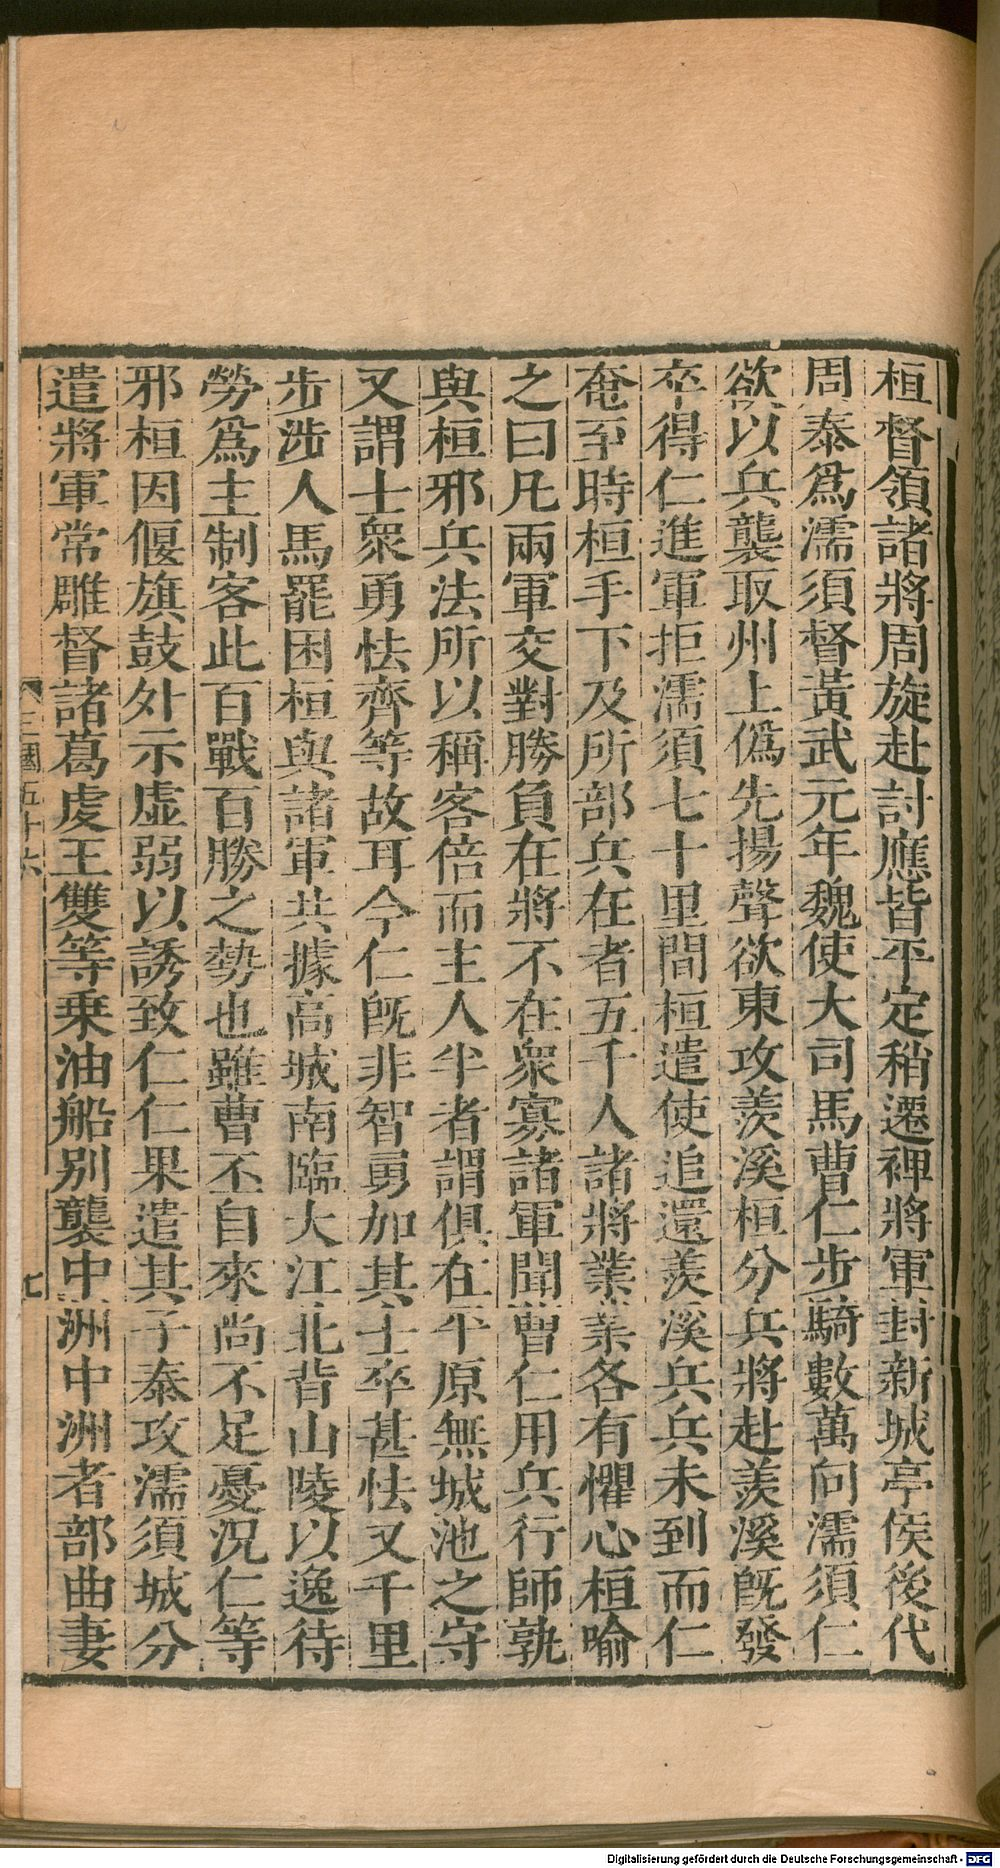 桓督領諸將周旋赴討應皆平定稍遷裨將軍封新城亭侯後代
周泰爲濡須督黃武元年魏使大司馬曹仁步騎數萬向濡須仁
欲以兵襲取州上僞先揚聲欲東攻羨溪桓分兵將赴羨溪旣發
卒得仁進軍拒濡須七十里間桓遣使追還羨溪兵兵未到而仁
奄至時桓手下及所部兵在者五千人諸將業業各有懼心桓喻
之曰凡兩軍交對勝負在將不在衆寡諸軍聞曹仁用兵行師孰
與桓邪兵法所以稱客倍而主人半者謂俱在平原無城池之守
又謂士衆勇怯齊等故耳今仁旣非智勇加其士卒甚怯又千里
步涉人馬罷困桓與諸軍共據高城南臨大江北背山陵以逸待
勞爲主制客此百戰百勝之勢也雖曹丕自來尚不足憂況仁等
邪桓因偃旗鼓外示虛弱以誘致仁仁果遣其子泰攻濡須城分
遣將軍常雕督諸葛虔王雙等乗油船別襲中洲中洲者部曲妻
三國五十六
七
Digitalisierung gefördert durch die Deutsche Forschungsgemeinschaft - DFG